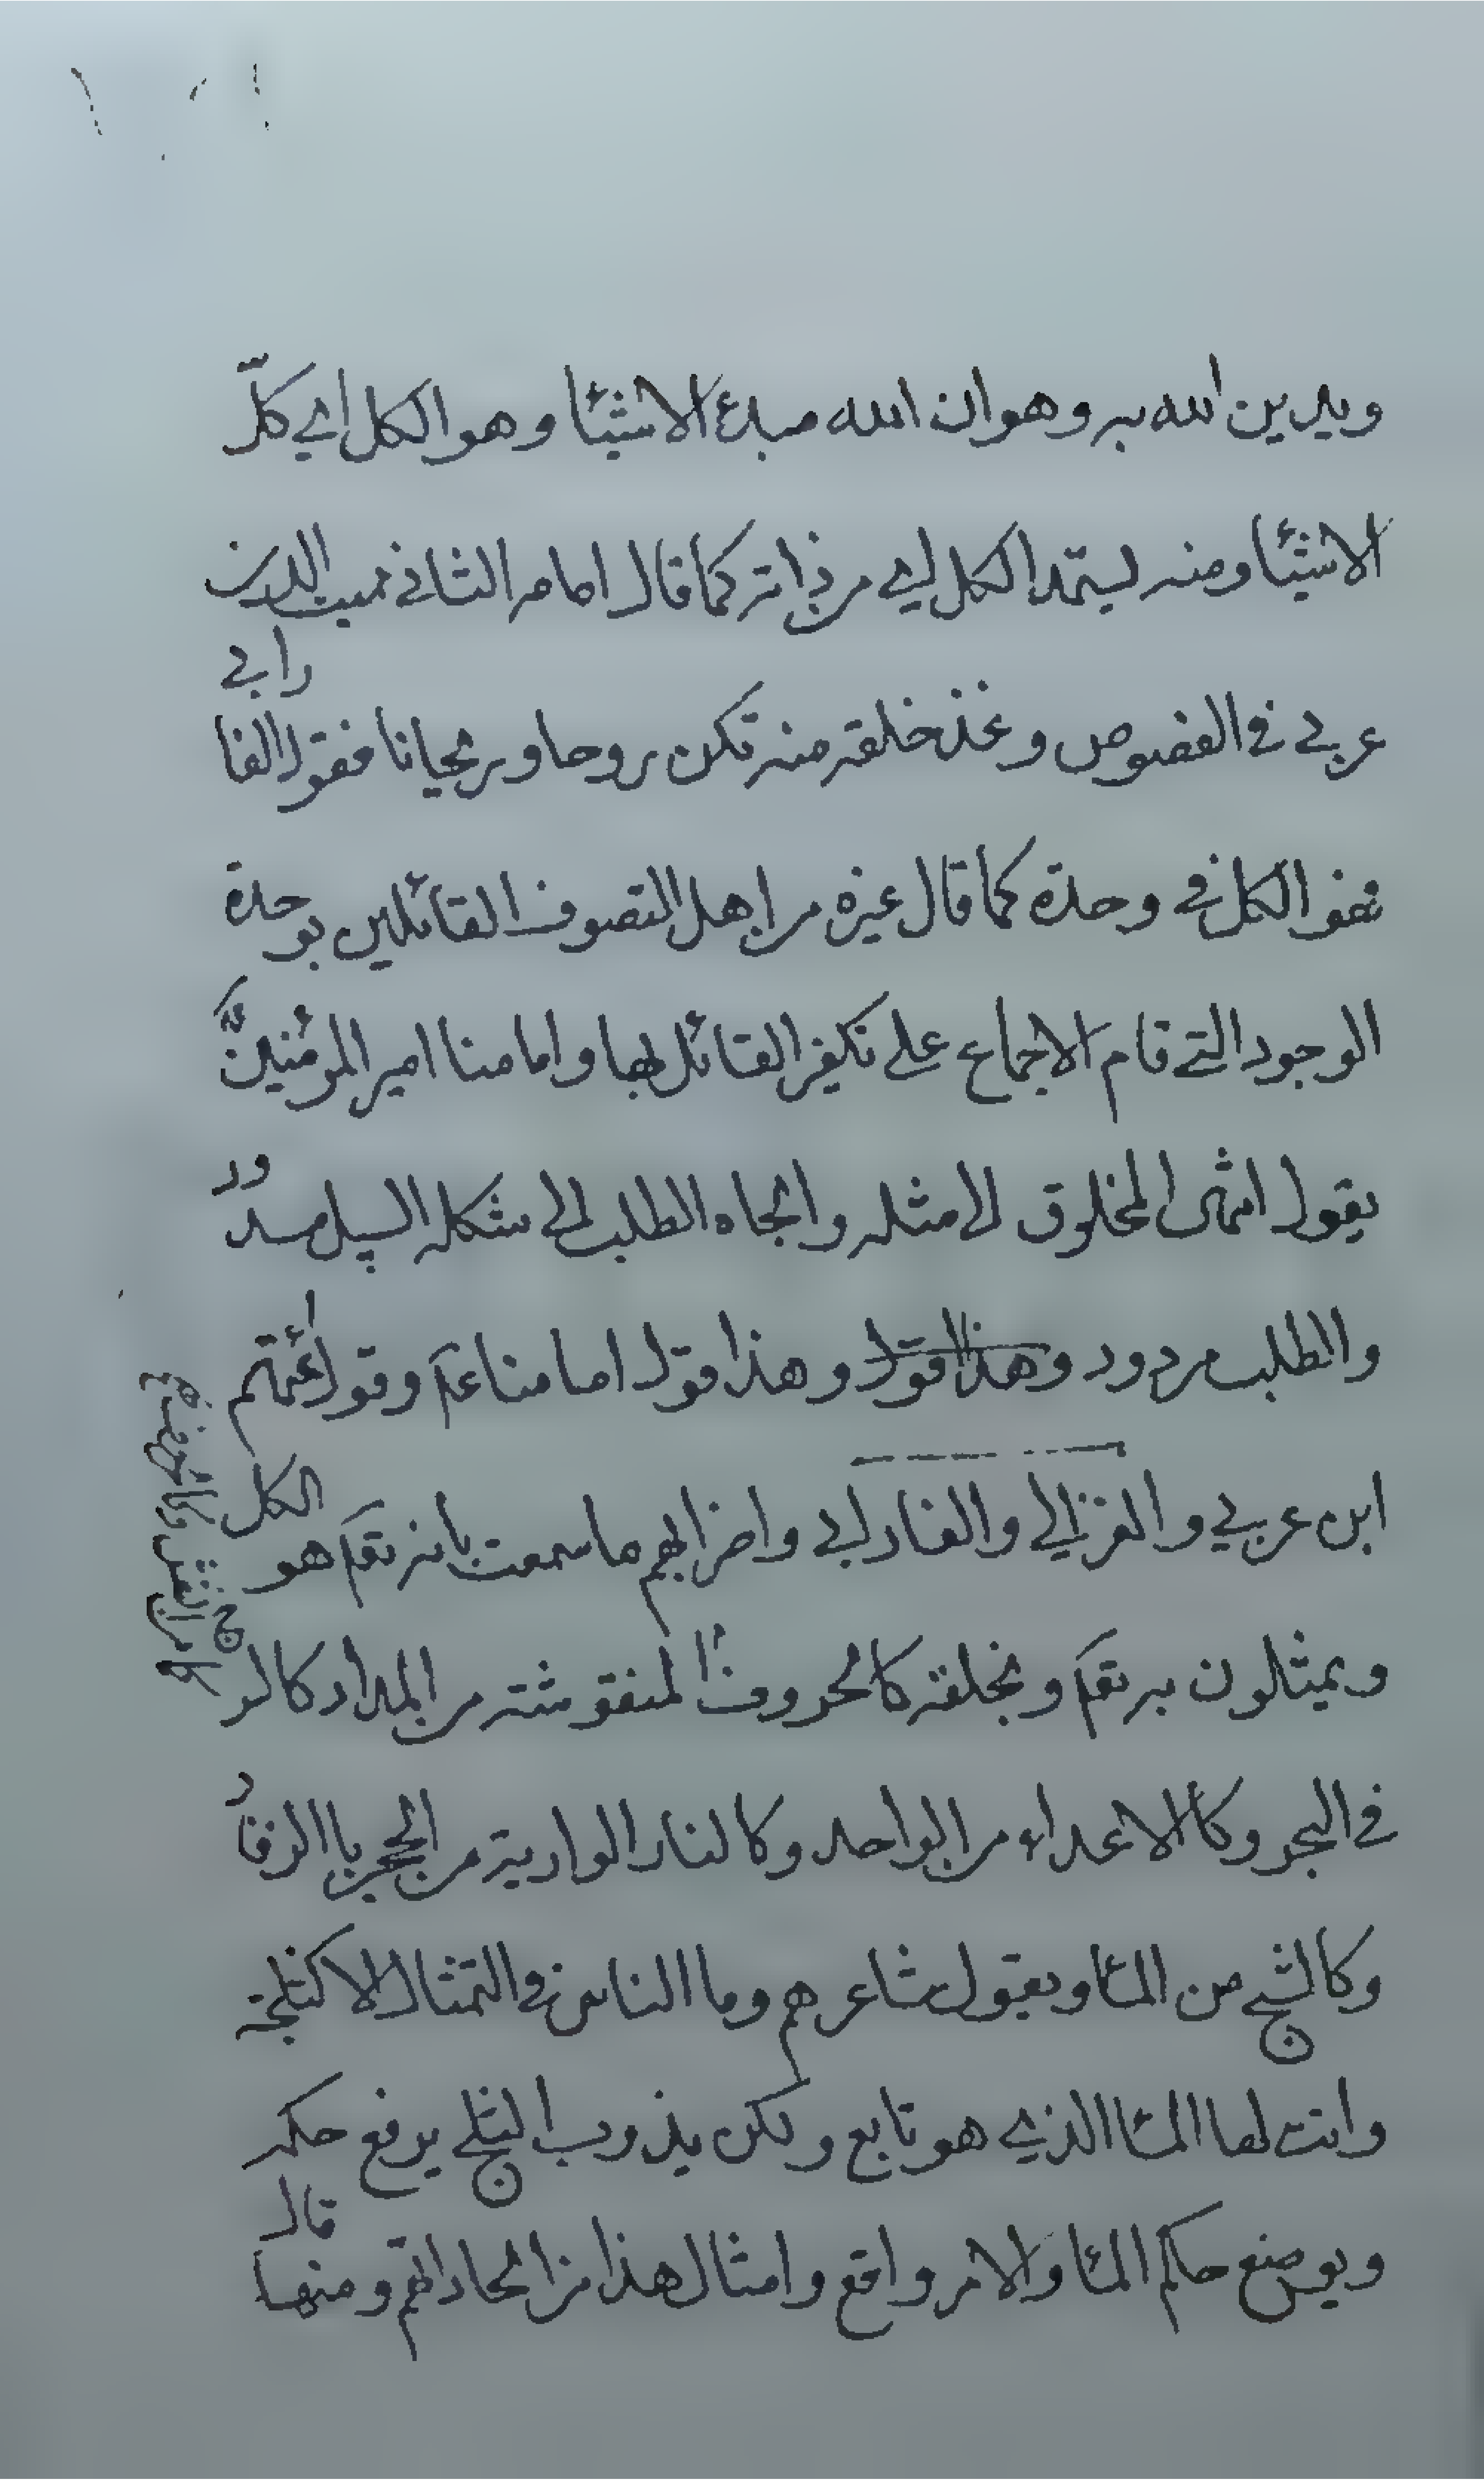 ويدين الله به وهو ان الله مبدء الاشيئا وهو الكل اي كلّ
الاشيئا ومنه يستمد الكل اي من ذاته كما قال امامه الثاني مميت الدين
عربي في الفصوص ونحن خلقه منه تكن روحا وريحانا فقول الفارابي
فهو الكل في وحدة كما قال غيره من اهل التصوف القائلين بوحدة
الوجود التي قام الاجماع على تكفير القائل بها وامامنا امير المؤمنين ع
يقول انتهى المخلوق الى مثله والجاه الطلب الى شكله السبيل مسدود
والطلب مردود وهذا قول وهذا قول امامنا عم وقول ائمتهم
ابن عربي والغزالي والفارابي واضرابهم ما سمعت بانه تعم هو الكل
ويمثلون به تعم وبخلقه كالحروف المنقوشة من المداد كالموج
في البحر وكالاعداد من الواحد وكالنار الوارية من الحجر بالزناد
وكالثلج من المئا ويقول شاعرهم وما الناس في التمثال الا كثلجة
وانت لها المئا الذي هو نابع ولكن يذوب الثلج يرفع حكمه
ويوضع حكم المئا والامر واقع وامثال هذا من الحاداتهم ومنها قال